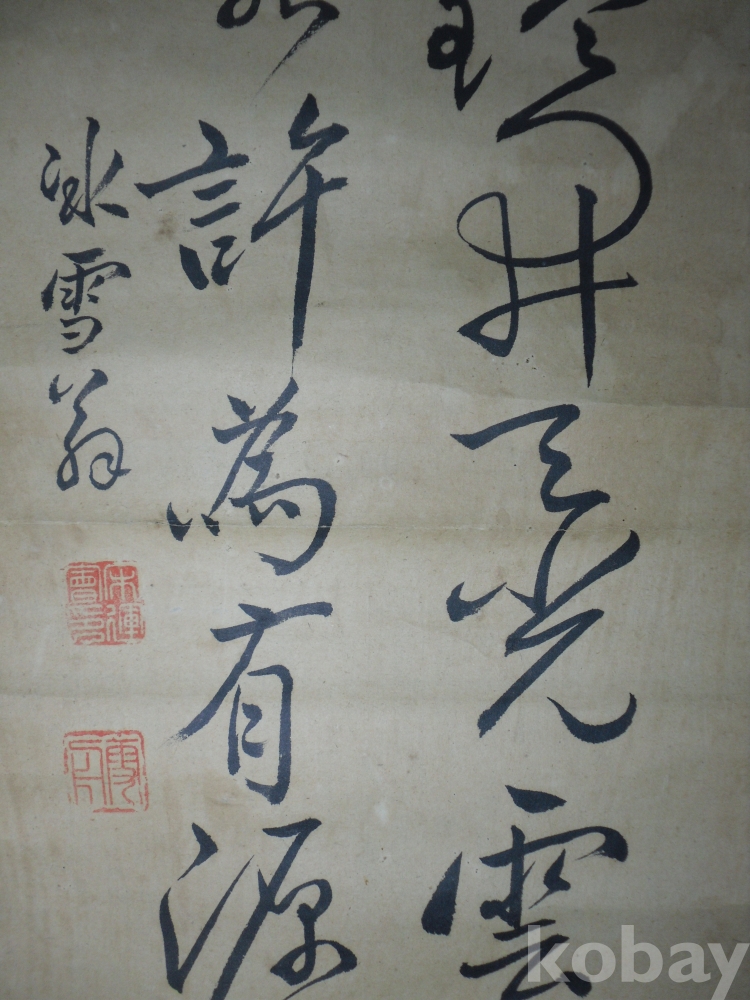 開天光雲
許為有源
冰雪翁
kobay